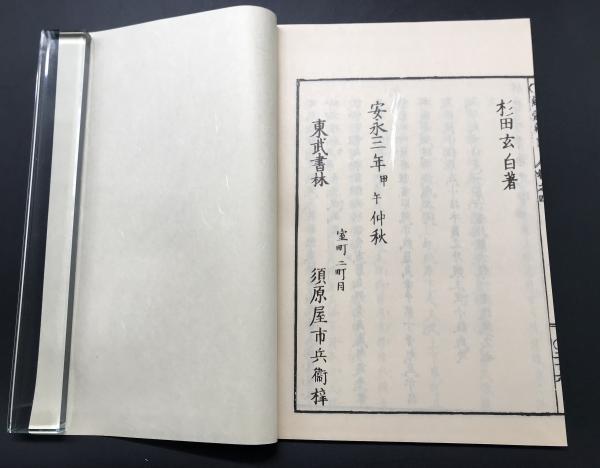 杉田玄白著
安永三年甲午仲秋
東武書林
室町二町目
須原屋市兵衞梓